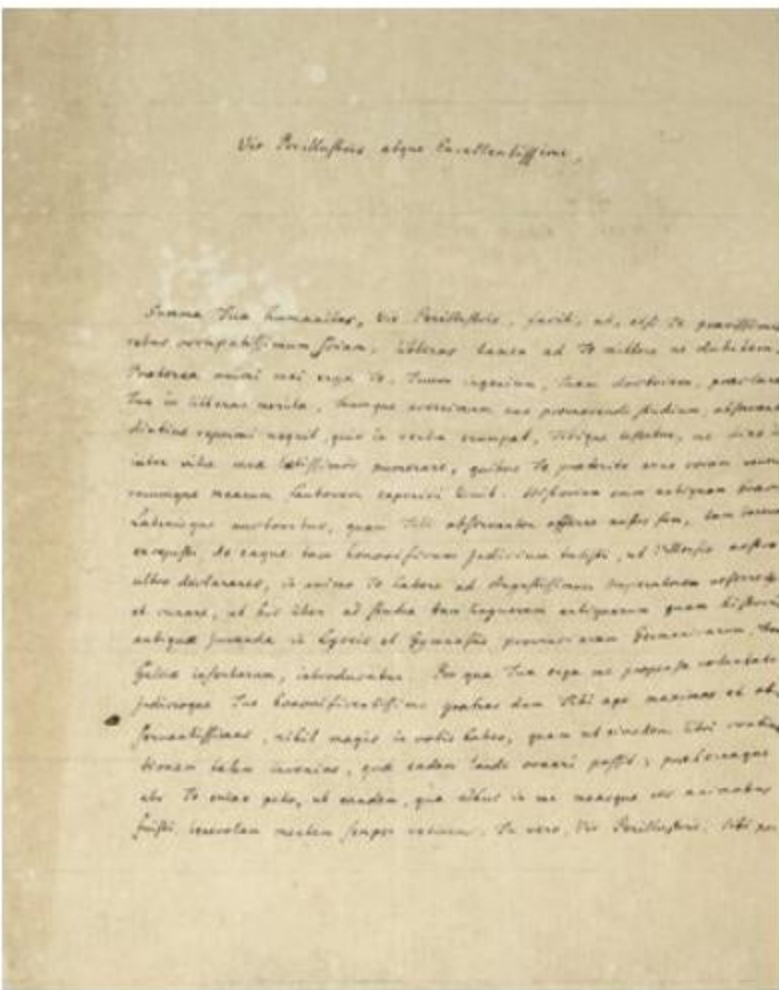 Vir Perillustris atque Excellentissime,
Summa Tua humanitas, Vir Perillustris, facit, ut, etsi Te gravissimis
rebus occupatissimum sciam, litteras tamen ad Te mittere ne dubitem.
Praeterea animi mei erga Te, Tuum ingenium, Tuam doctrinam, praeclara
Tua in litteras merita, Tuumque easdem promovendi studium, observan
diutius reprimi nequit, quin in verba erumpat, Tibique testetur, me
inter vitae meae laetissimos numerare, quibus Te praeterito anno coram
rerumque mearum fautorem experiri licuit. Historiam enim antiquam
Latinisque auctoribus, quam Tibi observanter offerre ausus sum, tam
excepisti, de eaque tam honorificum judicium tulisti, ut
ultro declarares, in animo Te habere ad Augustissimum Imperatorem referre
et curare, ut hic liber ad studia tam linguarum antiquarum quam histor
antiquae juvanda in Lyceis et Gymnasiis provinciarum Germanicarum,
Galliae insertarum, introducatur. Pro qua Tua erga me propensa voluntate
judicioque Tuo honorificentissimo gratias dum Tibi ago maximas et ob-
servantissimas, nihil magis in votis habeo, quam ut ejusdem libri continua
tionem talem invenias, quae eadem laude ornari possit;
abs Te enixe peto, ut eandem, qua adhuc in me measque res animatus
fuisti, benevolam mentem semper retineas. Tu vero, Vir Perillustris, Tibi